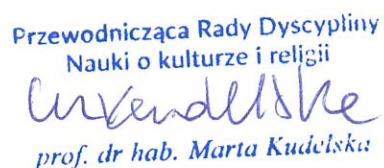 Przewodnicząca Rady Dyscypliny
Nauki o kulturze i religii
prof. dr hab. Marta Kudelska